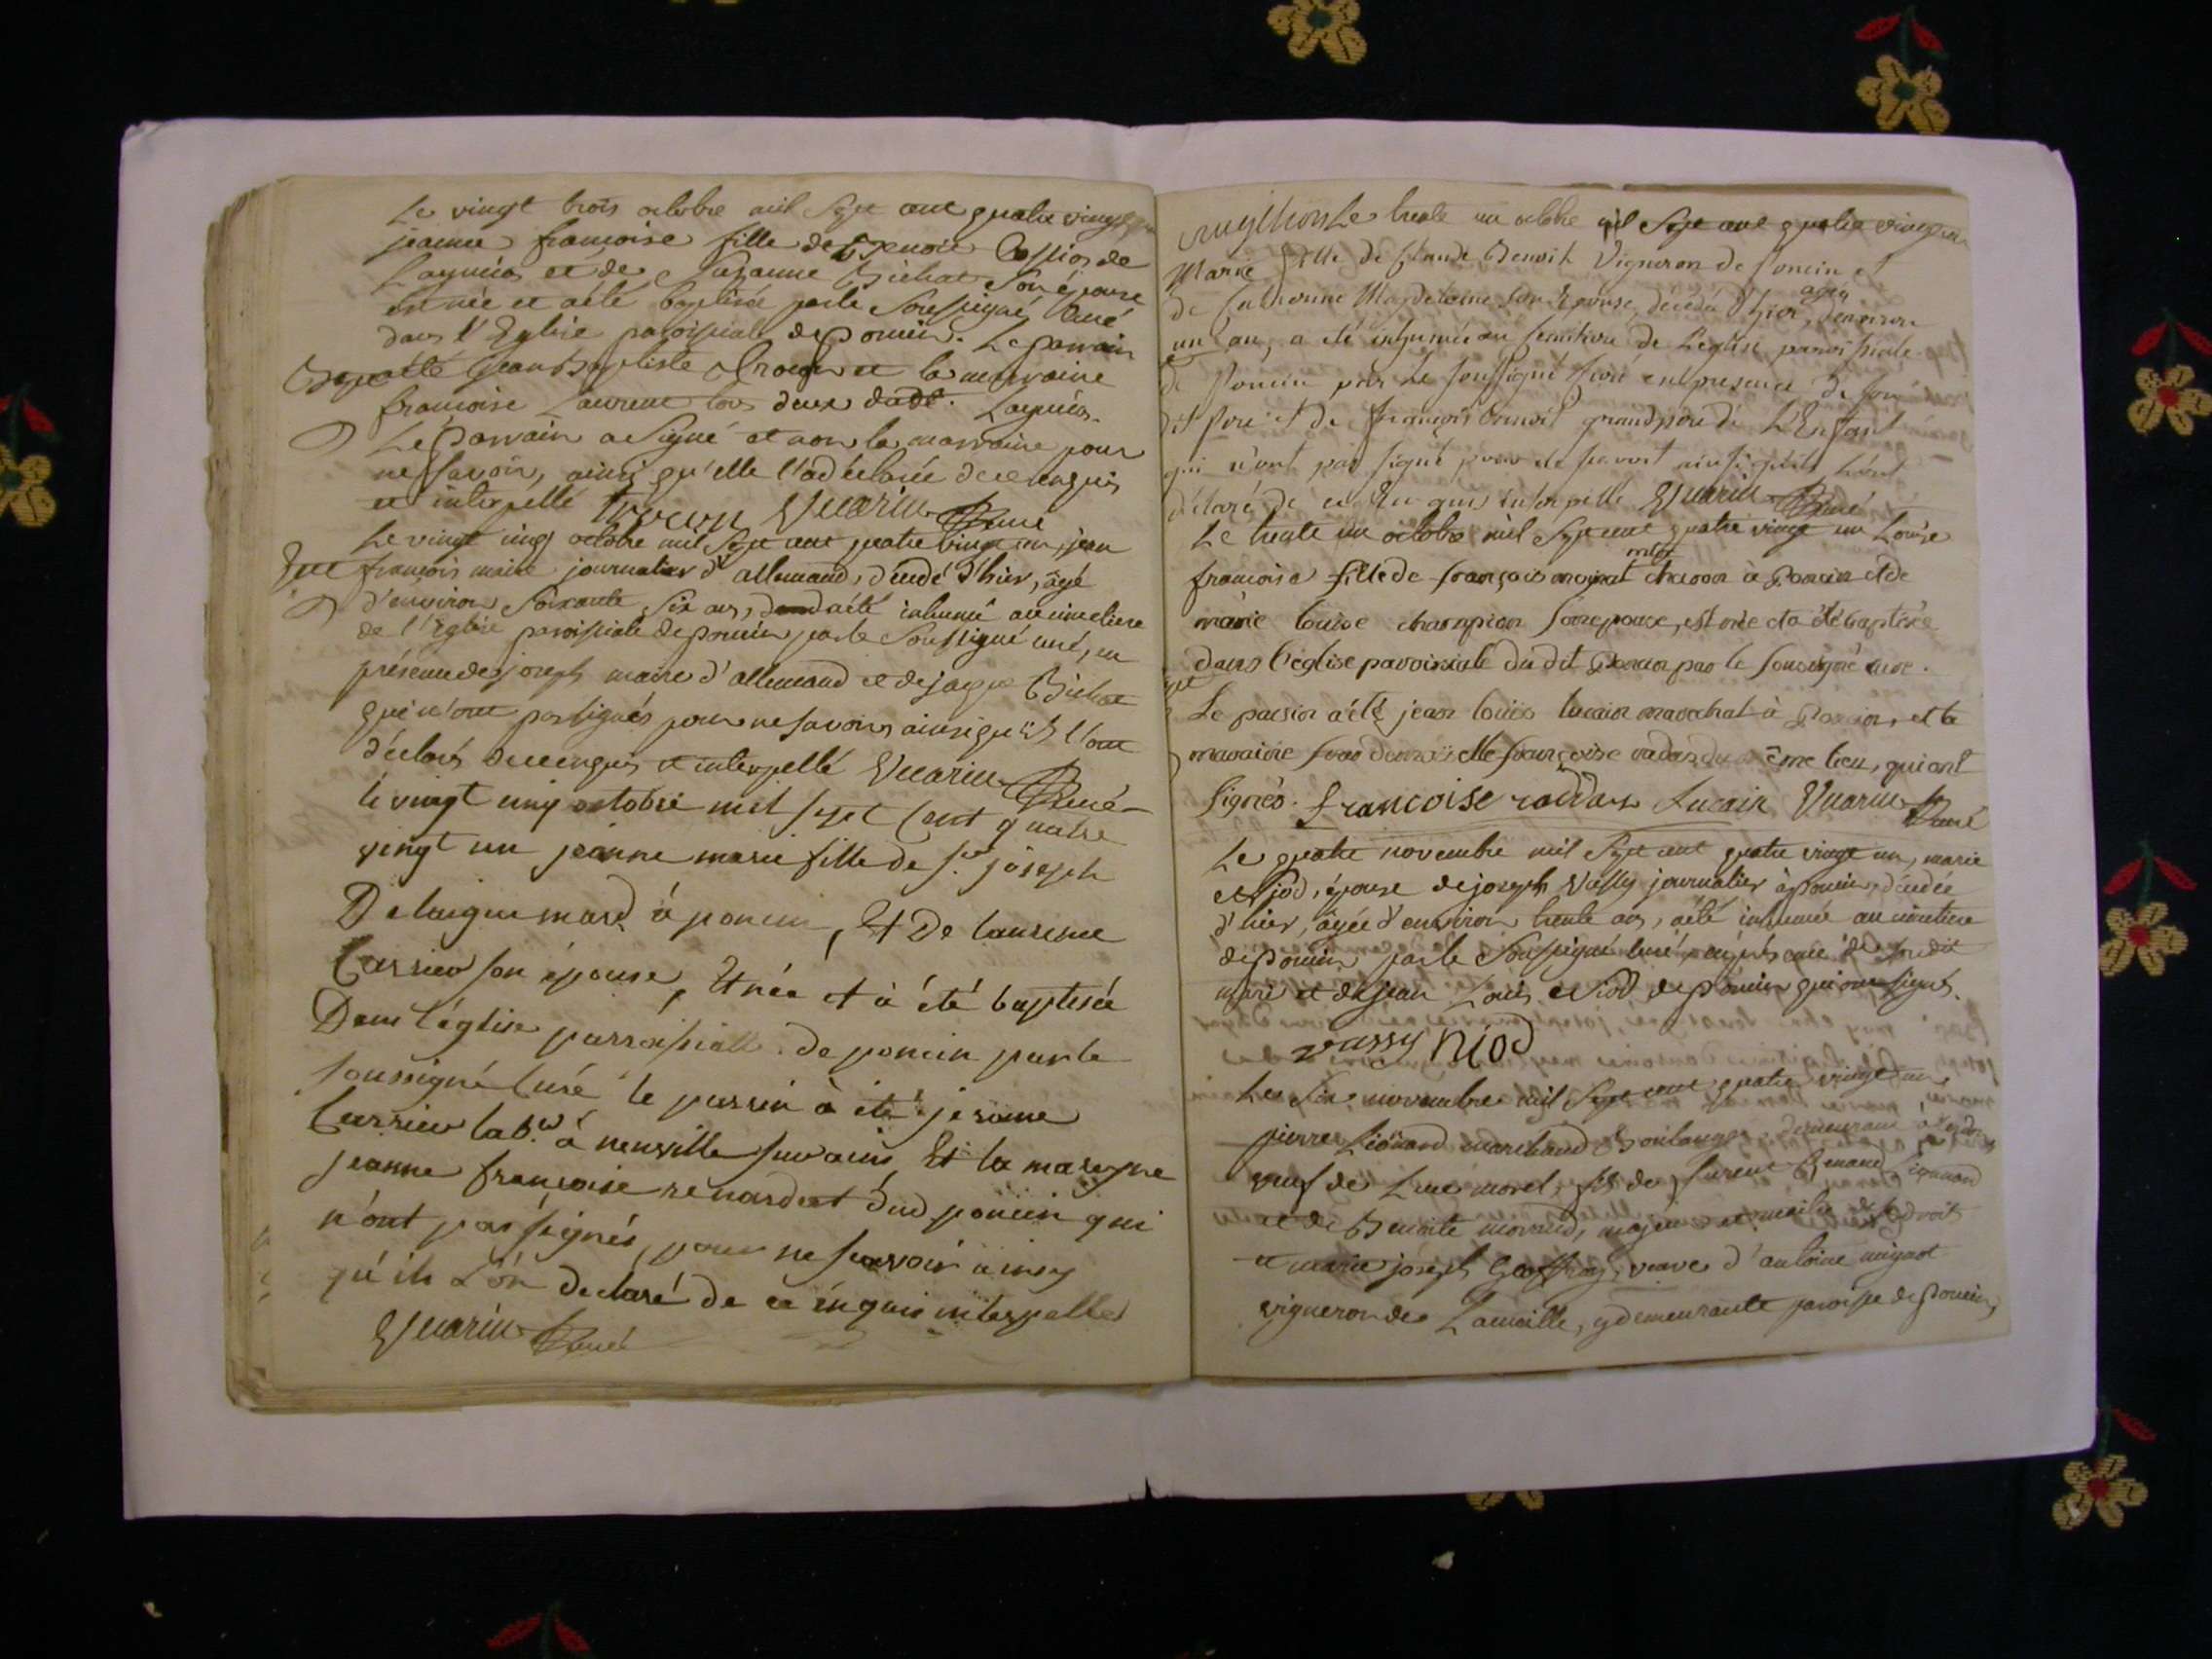 Le vingt trois octobre mil sept cent quatre vingt
jeanne françoise fille de Benoit de
et de Suzanne Bichat son épouse
est née et a été baptisée par le soussigné Curé
dans l'Eglise paroissiale de poncin. Le parrain
a été jean Baptiste et la marraine
françoise Laurent tous deux dudt.
Le parrain a signé et non la marraine pour
ne savoir, ainsi qu'elle l'a déclaré de ce enquis
et interpellé Vuarin Curé
Le vingt cinq octobre mil sept cent quatre vingt un, jean
françois maire journalier d'allemand, décédé d'hier, âgé
d'environ soixante six ans, a été inhumé au cimetiere
de l'Eglise paroissiale de poncin par le soussigné curé, en
présence de joseph maire d'allemand et de jaque Bichat
qui n'ont pas signés pour ne savoir ainsi qu'ils l'ont
déclaré de ce enquis et interpellé Vuarin Curé
le vingt cinq octobre mil sept cent quatre
vingt un jeanne marie fille de Sr. joseph
Delaigue mard à poncin, Et De laurence
Carrier son épouse, Et née et à été baptisée
Dans l'église parroissialle de poncin par le
soussigné Curé le parrin à été jerome
Carrier labr. à neuville sur ains, Et la mareyne
jeanne françoise renardat dud poncin qui
n'ont pas signés, pour ne sçavoir ainsy
qu'ils L'on declaré de ce enquis interpellés
Vuarin Curé
Le trente un octobre mil sept cent quatre vingt un
Marie fille de Claude Benoit Vigneron de Poncin et
de Catherine Magdelaine son Epouse, décédée d'hier, agée d'environ
un an, a été inhumée au cimetiere de L'église paroissiale
de Poncin par le soussigné Curé en presence de son
dit pere et de François Benoit grand pere de L'Enfant
qui n'ont pas signé pour ne savoir ainsi qu'ils l'ont
déclaré de ce Enquis interpellé Vuarin Curé
Le trente un octobre mil sept cent quatre vingt un Louise
françoise fille de françois moinat à Poncin et de
marie louise champion son epouse, est née et a été baptisée
dans l'église paroissiale du dit Poncin par le soussigné curé.
Le parrin a été jean louis lucain marchat à Poncin, et la
maraine françoise du même lieu, qui ont
signés. françoise Lucain Vuarin Curé
Le quatre novembre mil sept cent quatre vingt un, marie
Niod, épouse de joseph Vassy journalier à poncin, décédée
d'hier, âgée d'environ trente ans, a été inhumée au cimetiere
de poncin par le soussigné Curé, en présence de son dit
mari et de jean Louis Niod de poncin qui ont signé.
vassy niod
Le six novembre mil sept cent quatre vingt un,
pierre Liénard marchand Boulanger, demeurant à
veuf de Luce morel, fils de
et de Benoite morand, majeur et maître de ses droits
et marie joseph Geoffray, veuve d'antoine mignot
vigneron de, y demeurante paroisse de poncin,